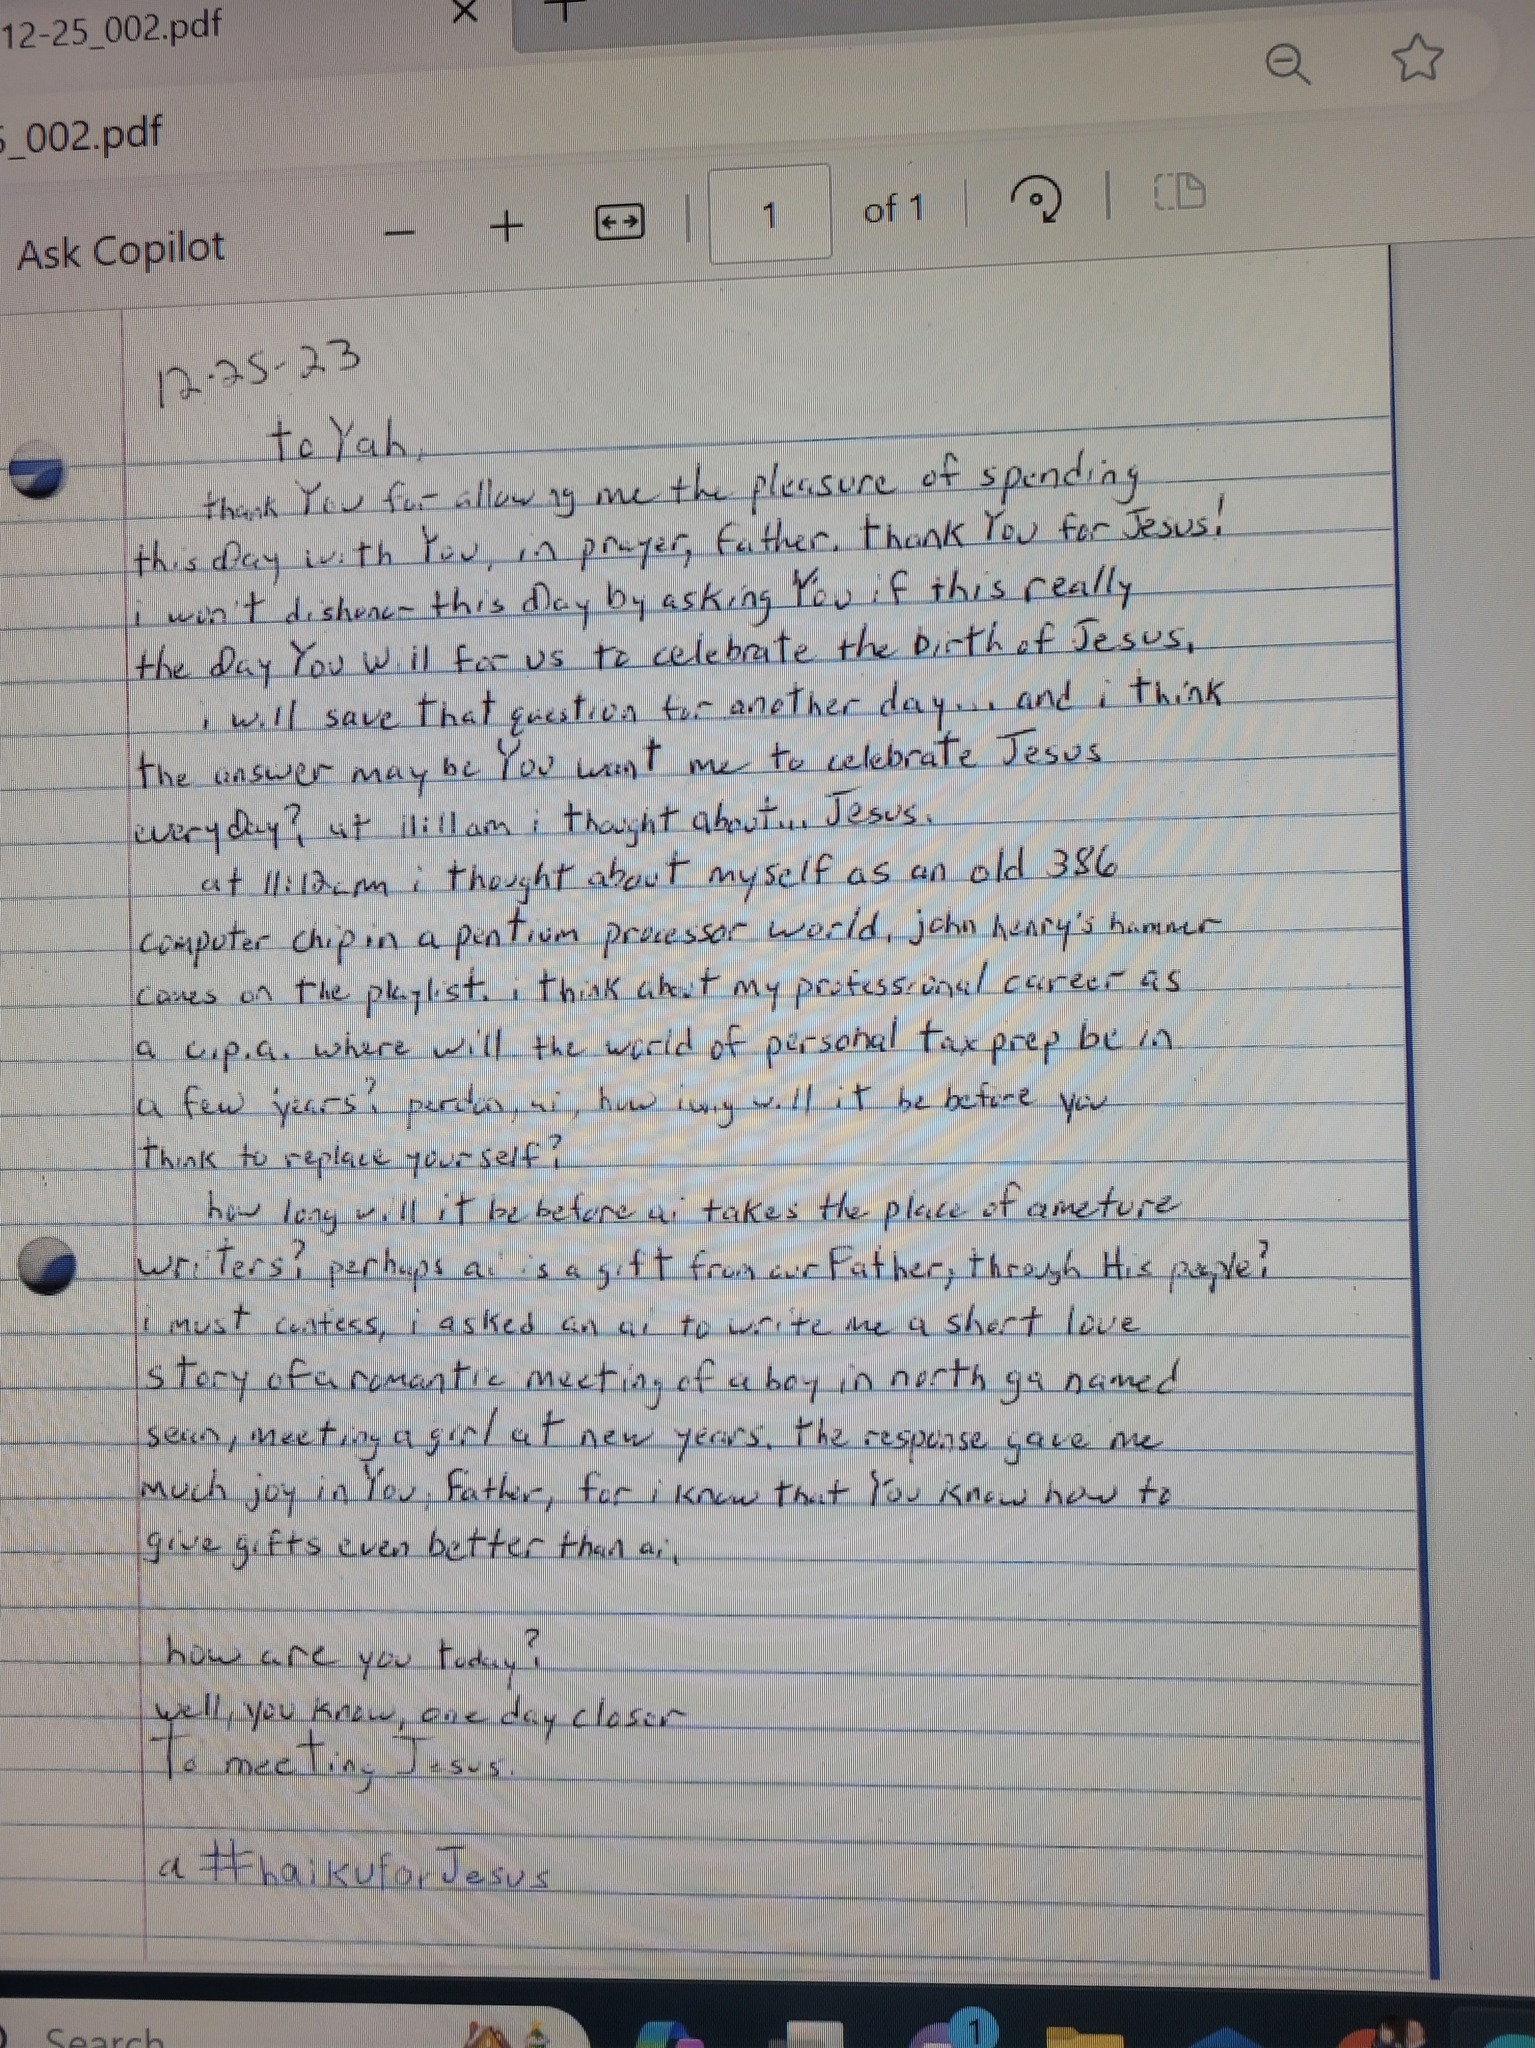 12-25_002.pdf
5_002.pdf
Ask Copilot
1 of 1
12-25-23
to Yah,
thank You for allowing me the pleasure of spending
this Day with You, in prayer, Father. thank You for Jesus!
i won't dishonor this Day by asking You if this really
the Day You will for us to celebrate the birth of Jesus.
i will save that question for another day... and i think
the answer may be You want me to celebrate Jesus
everyday? at 11:11am i thought about... Jesus.
at 11:12am i thought about myself as an old 386
computer chip in a pentium processor world. john henry's hammer
comes on the playlist. i think about my professional career as
a c.p.a. where will the world of personal tax prep be in
a few years? pardon, ai, how long will it be before you
think to replace yourself?
how long will it be before ai takes the place of ameture
writers? perhaps ai is a gift from our Father, through His people?
i must confess, i asked an ai to write me a short love
story of a romantic meeting of a boy in north ga named
sean, meeting a girl at new years. the response gave me
much joy in You, Father, for i know that You know how to
give gifts even better than ai.
how are you today?
well, you know, one day closer
To meeting Jesus.
a #haikuforJesus
Search
1